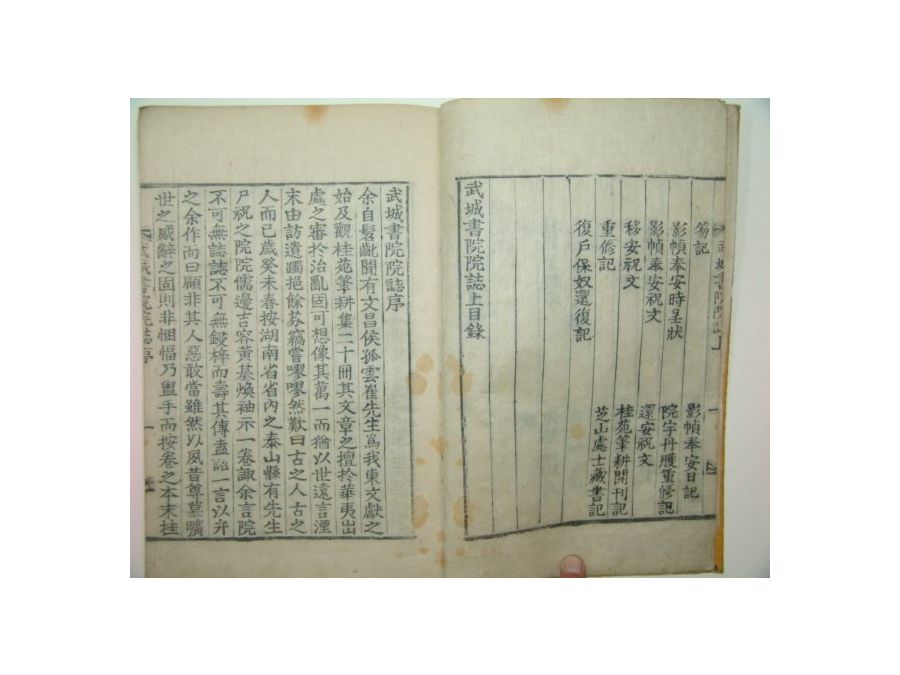 武城書院
笏記 影幀奉安日記
影幀奉安時呈狀 院宇丹雘重修記
影幀奉安祝文 還安祝文
移安祝文 桂苑筆耕開刊記
重修記 芝山處士藏書記
復戶保奴還復記
武城書院院誌上目錄
武城書院院誌序
余自髫齔聞有文昌侯孤雲崔先生爲我東文獻之
始及觀桂苑筆耕集二十冊其文章之擅於華夷出
處之審於治亂固可想像其萬一而猶以世遠言湮
末由訪遺躅挹餘芬竊嘗嘐嘐然歎曰古之人古之
人而已歲癸未春按湖南省省內之泰山縣有先生
尸祝之院院儒邊吉容黃基煥袖示一卷諏余言院
不可無誌誌不可無鋟梓而壽其傳盍詔一言以弁
之余作而曰顧非其人惡敢當雖然以夙昔尊慕曠
世之感辭之固則非悃愊乃盥手而按卷之本末桂
武城書院院誌序 一